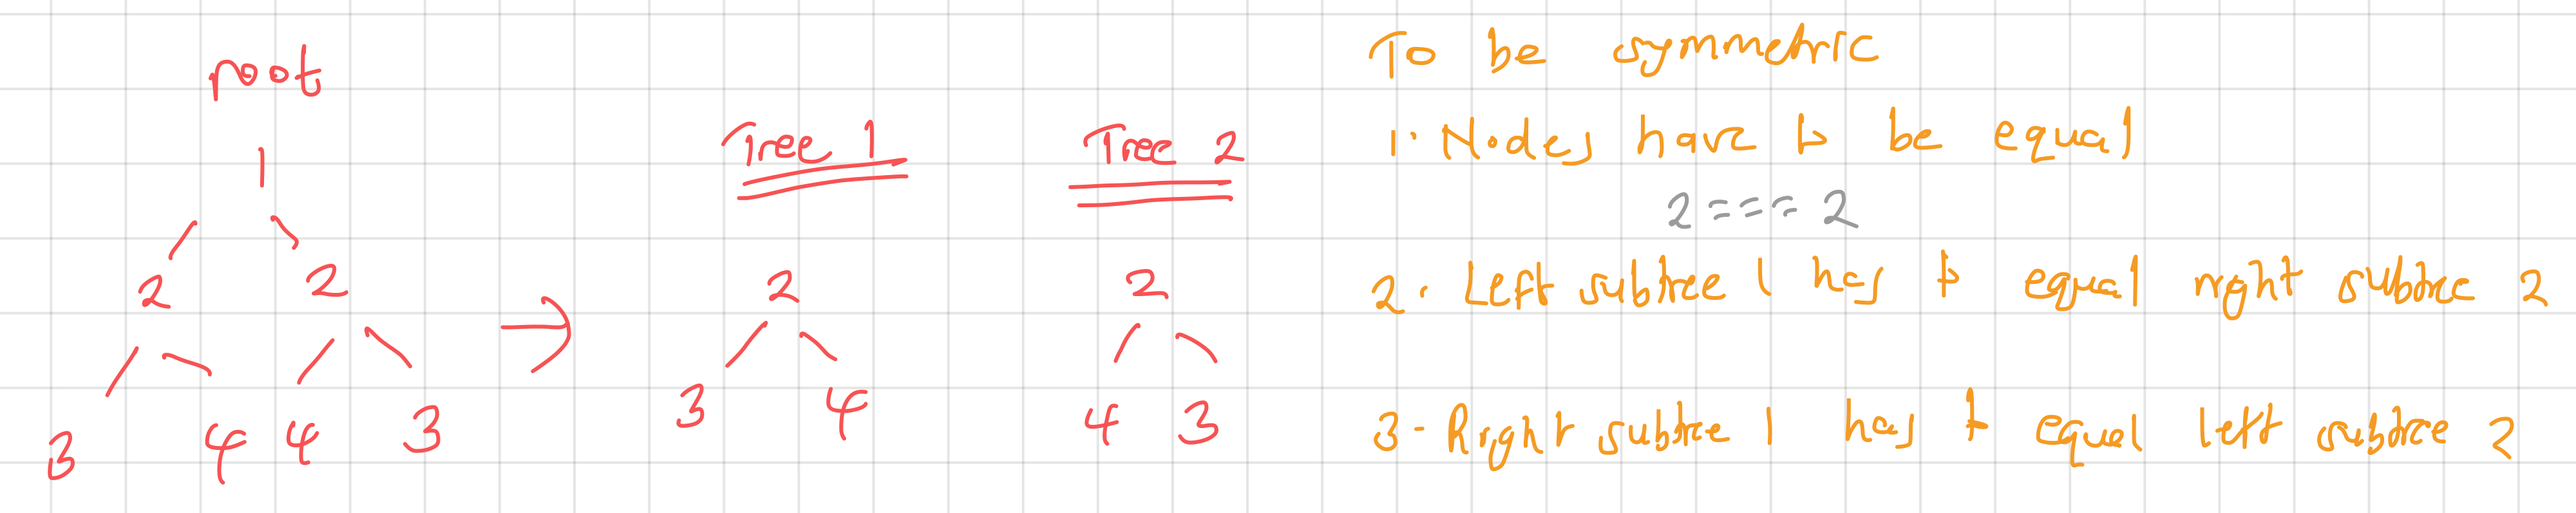 root
1
2 2
3 4 4 3
Tree 1
2
3 4
Tree 2
2
4 3
To be symmetric
1. Nodes have to be equal
2 === 2
2. Left subtree 1 has to equal right subtree 2
3. Right subtree 1 has to equal left subtree 2